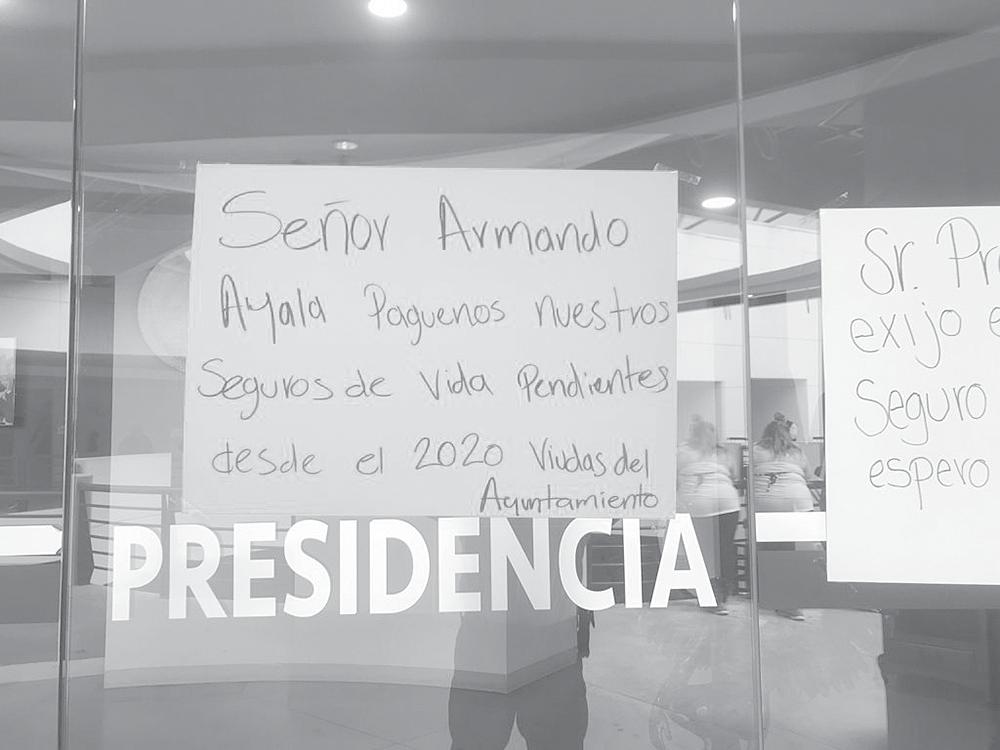 Señor Armando
Ayala Paguenos nuestros
Seguros de Vida Pendientes
desde el 2020 Viudas del
Ayuntamiento
PRESIDENCIA
Sr.
exijo
Seguro
espero